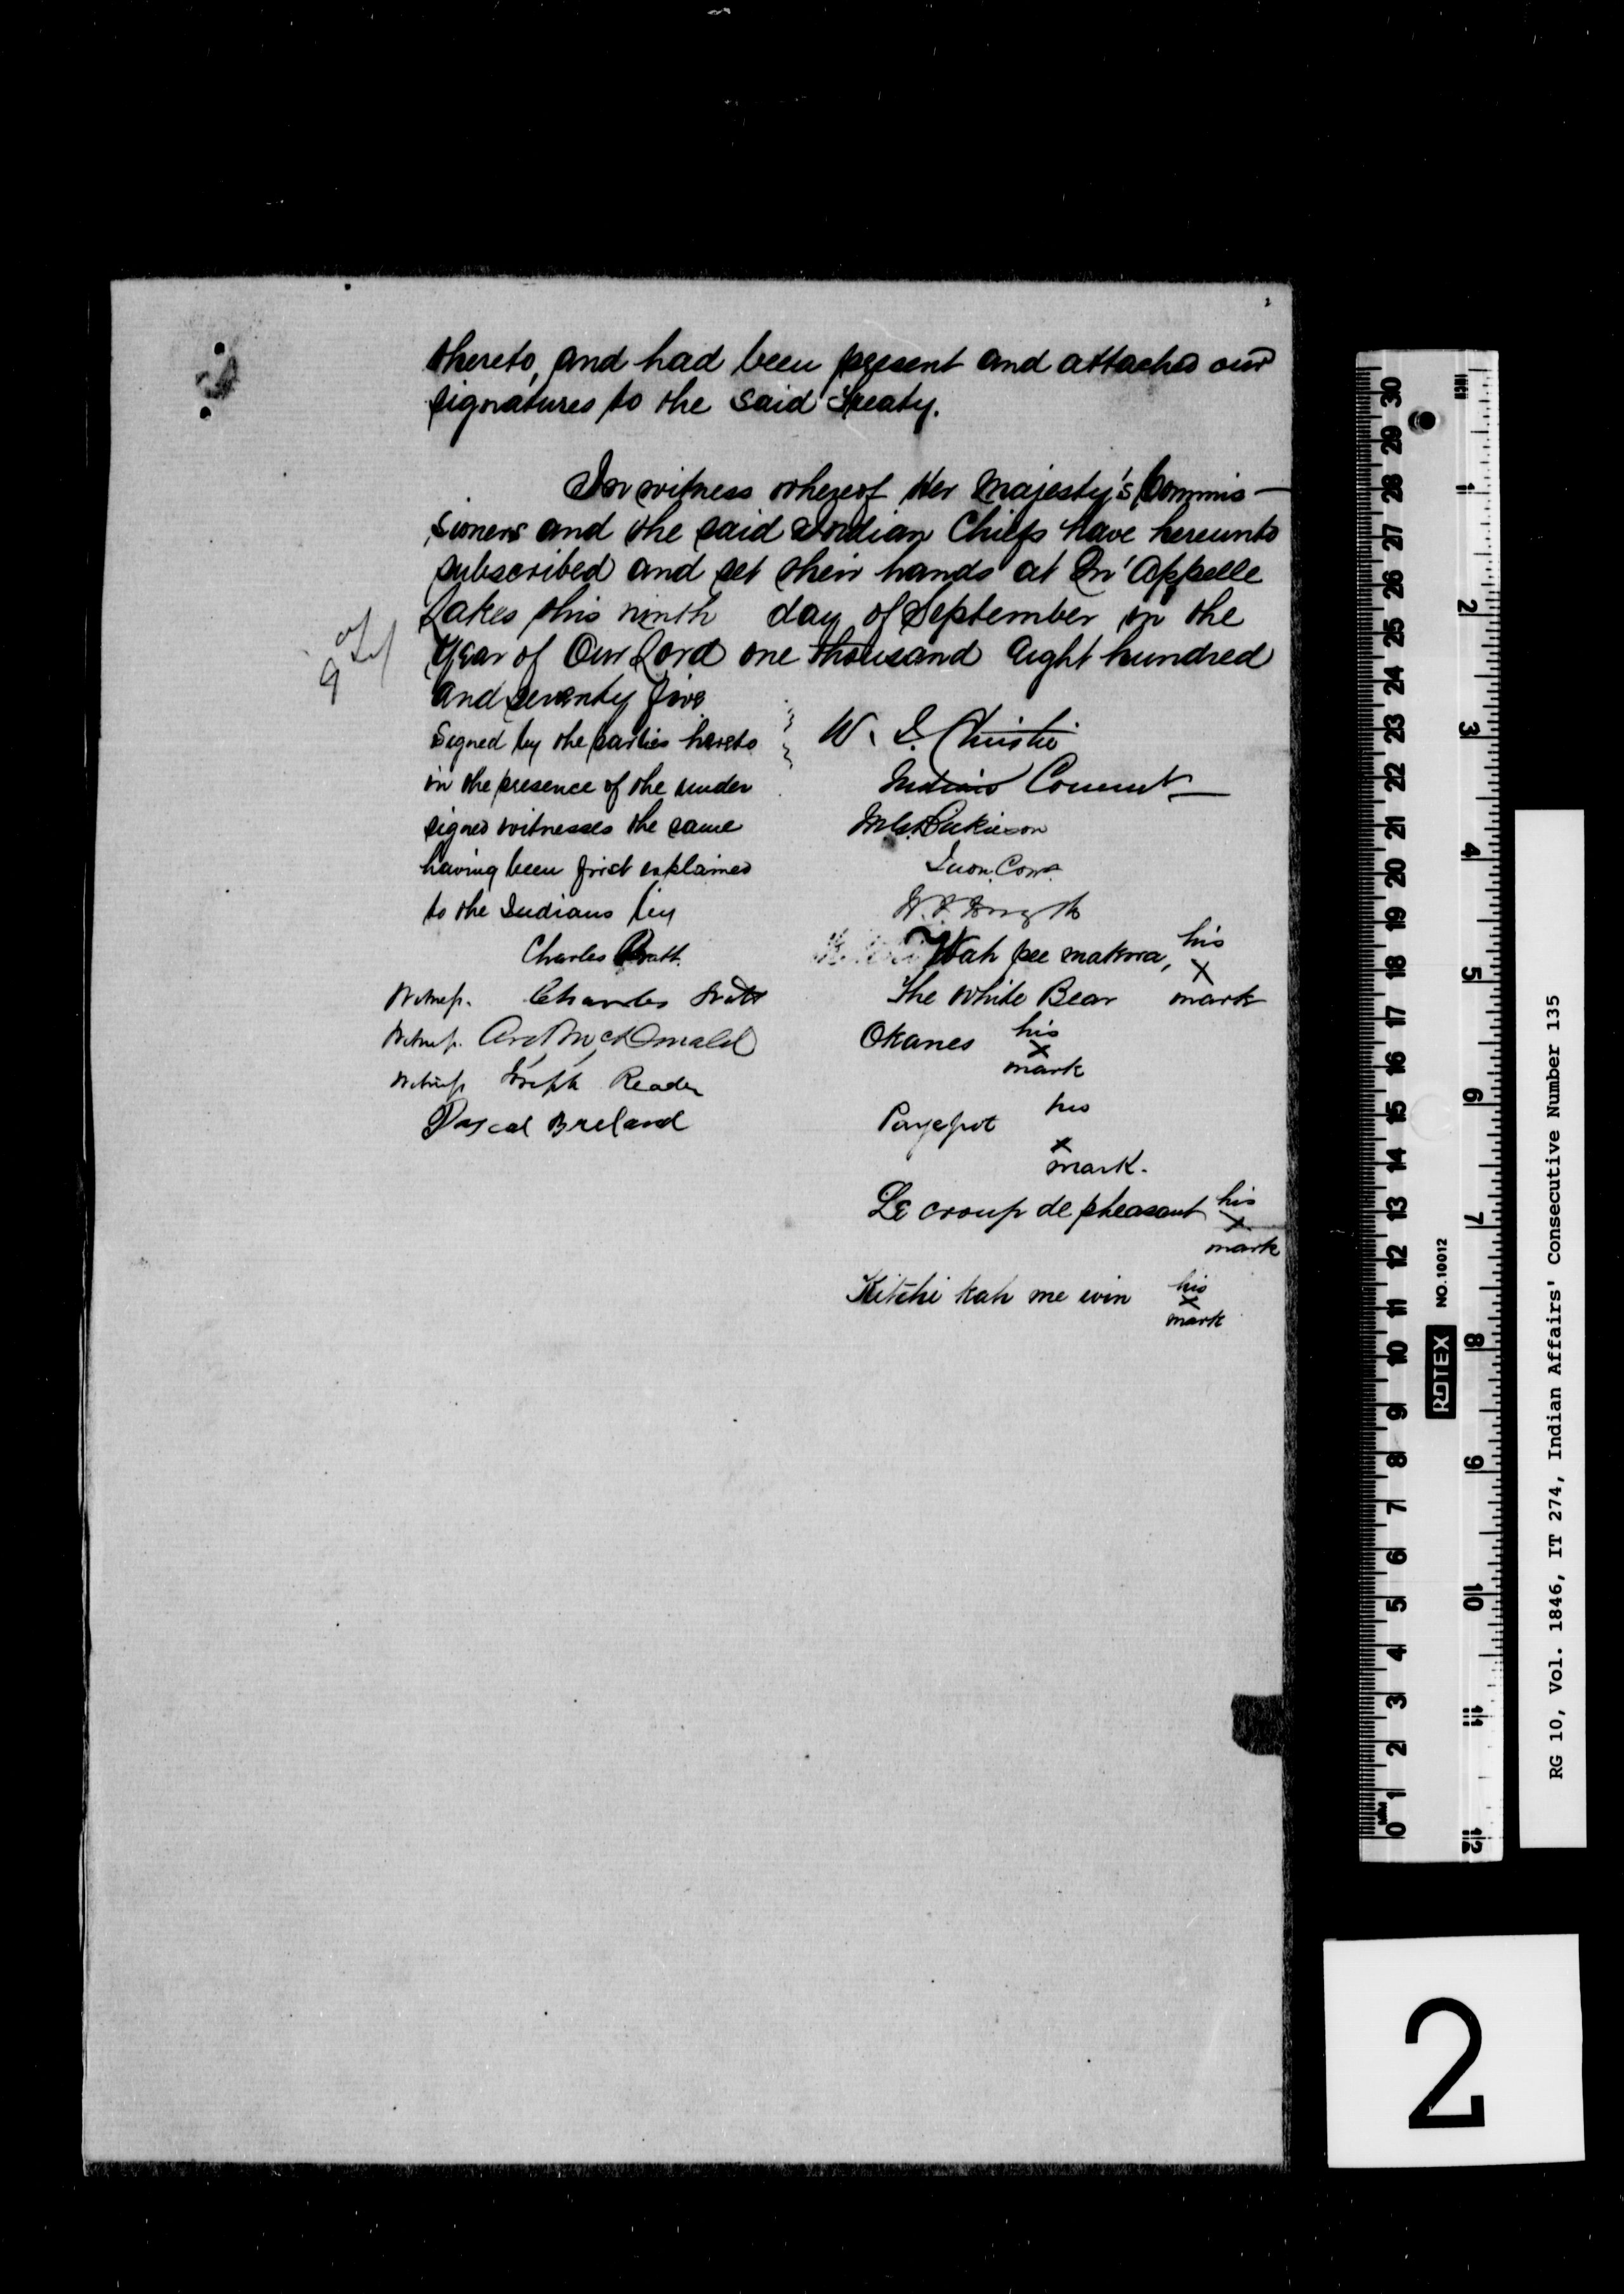 thereto, and had been present and attached our
signatures to the said Treaty.
In witness whereof Her Majesty's Commis-
sioners and the said Indian Chiefs have hereunto
subscribed and set their hands at Qu'Appelle
Lakes this ninth day of September in the
Year of Our Lord one thousand eight hundred
and seventy five
Signed by the parties hereto
in the presence of the under
signed witnesses the same
having been first explained
to the Indians by
Charles Pratt.
Witness. Charles Pratt
Witness. Arch McDonald
Witness Joseph Reader
Pascal Breland
W. J. Christie
Indian Commr
M G Dickieson
W. F. Forsyth
Wah pee makwa, his
The White Bear x mark
Okanes his
x
mark
Payepot his
x
mark.
Le croup de pheasant his
x
mark
Kitchi kah me win his
x
mark
RG 10, Vol. 1846, IT 274, Indian Affairs' Consecutive Number 135
ROTEX NO.10012
INCH 1 2 3 4 5 6 7 8 9 10 11 12
30 29 28 27 26 25 24 23 22 21 20 19 18 17 16 15 14 13 12 11 10 9 8 7 6 5 4 3 2 1 0
2